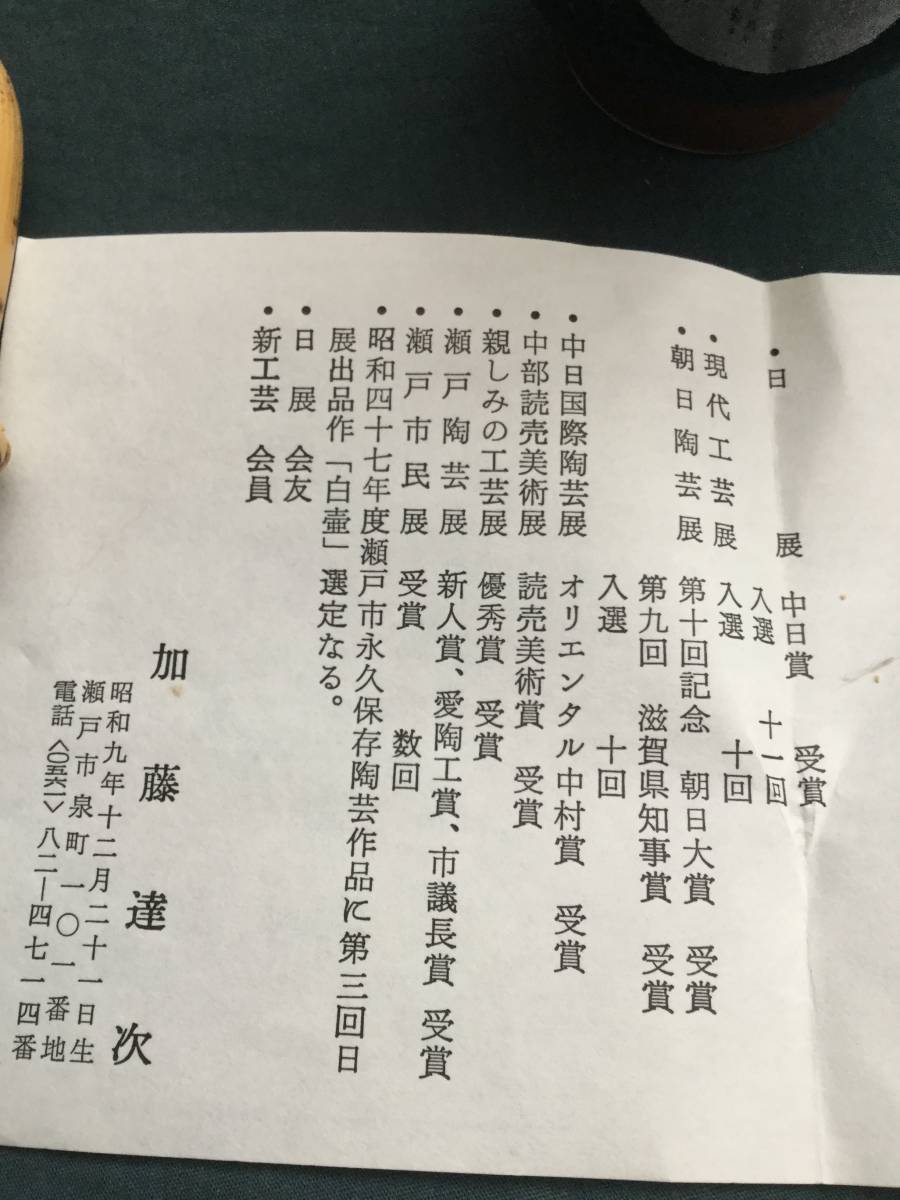 中日賞 受賞
・日展 入選 十一回
・現代工芸展 入選 十回
・朝日陶芸展 第十回記念 朝日大賞 受賞
第九回 滋賀県知事賞 受賞
入選 十回
・中日国際陶芸展 オリエンタル中村賞 受賞
・中部読売美術展 読売美術賞 受賞
・親しみの工芸展 優秀賞 受賞
・瀬戸陶芸展 新人賞、愛陶工賞、市議長賞 受賞
・瀬戸市民展 受賞 数回
・昭和四十七年度瀬戸市永久保存陶芸作品に第三回日
展出品作「白壷」選定なる。
・日展会友
・新工芸会員
加藤達次
昭和九年十二月二十一日生
瀬戸市泉町一〇一番地
電話〈〇五六一〉八二―四七一四番